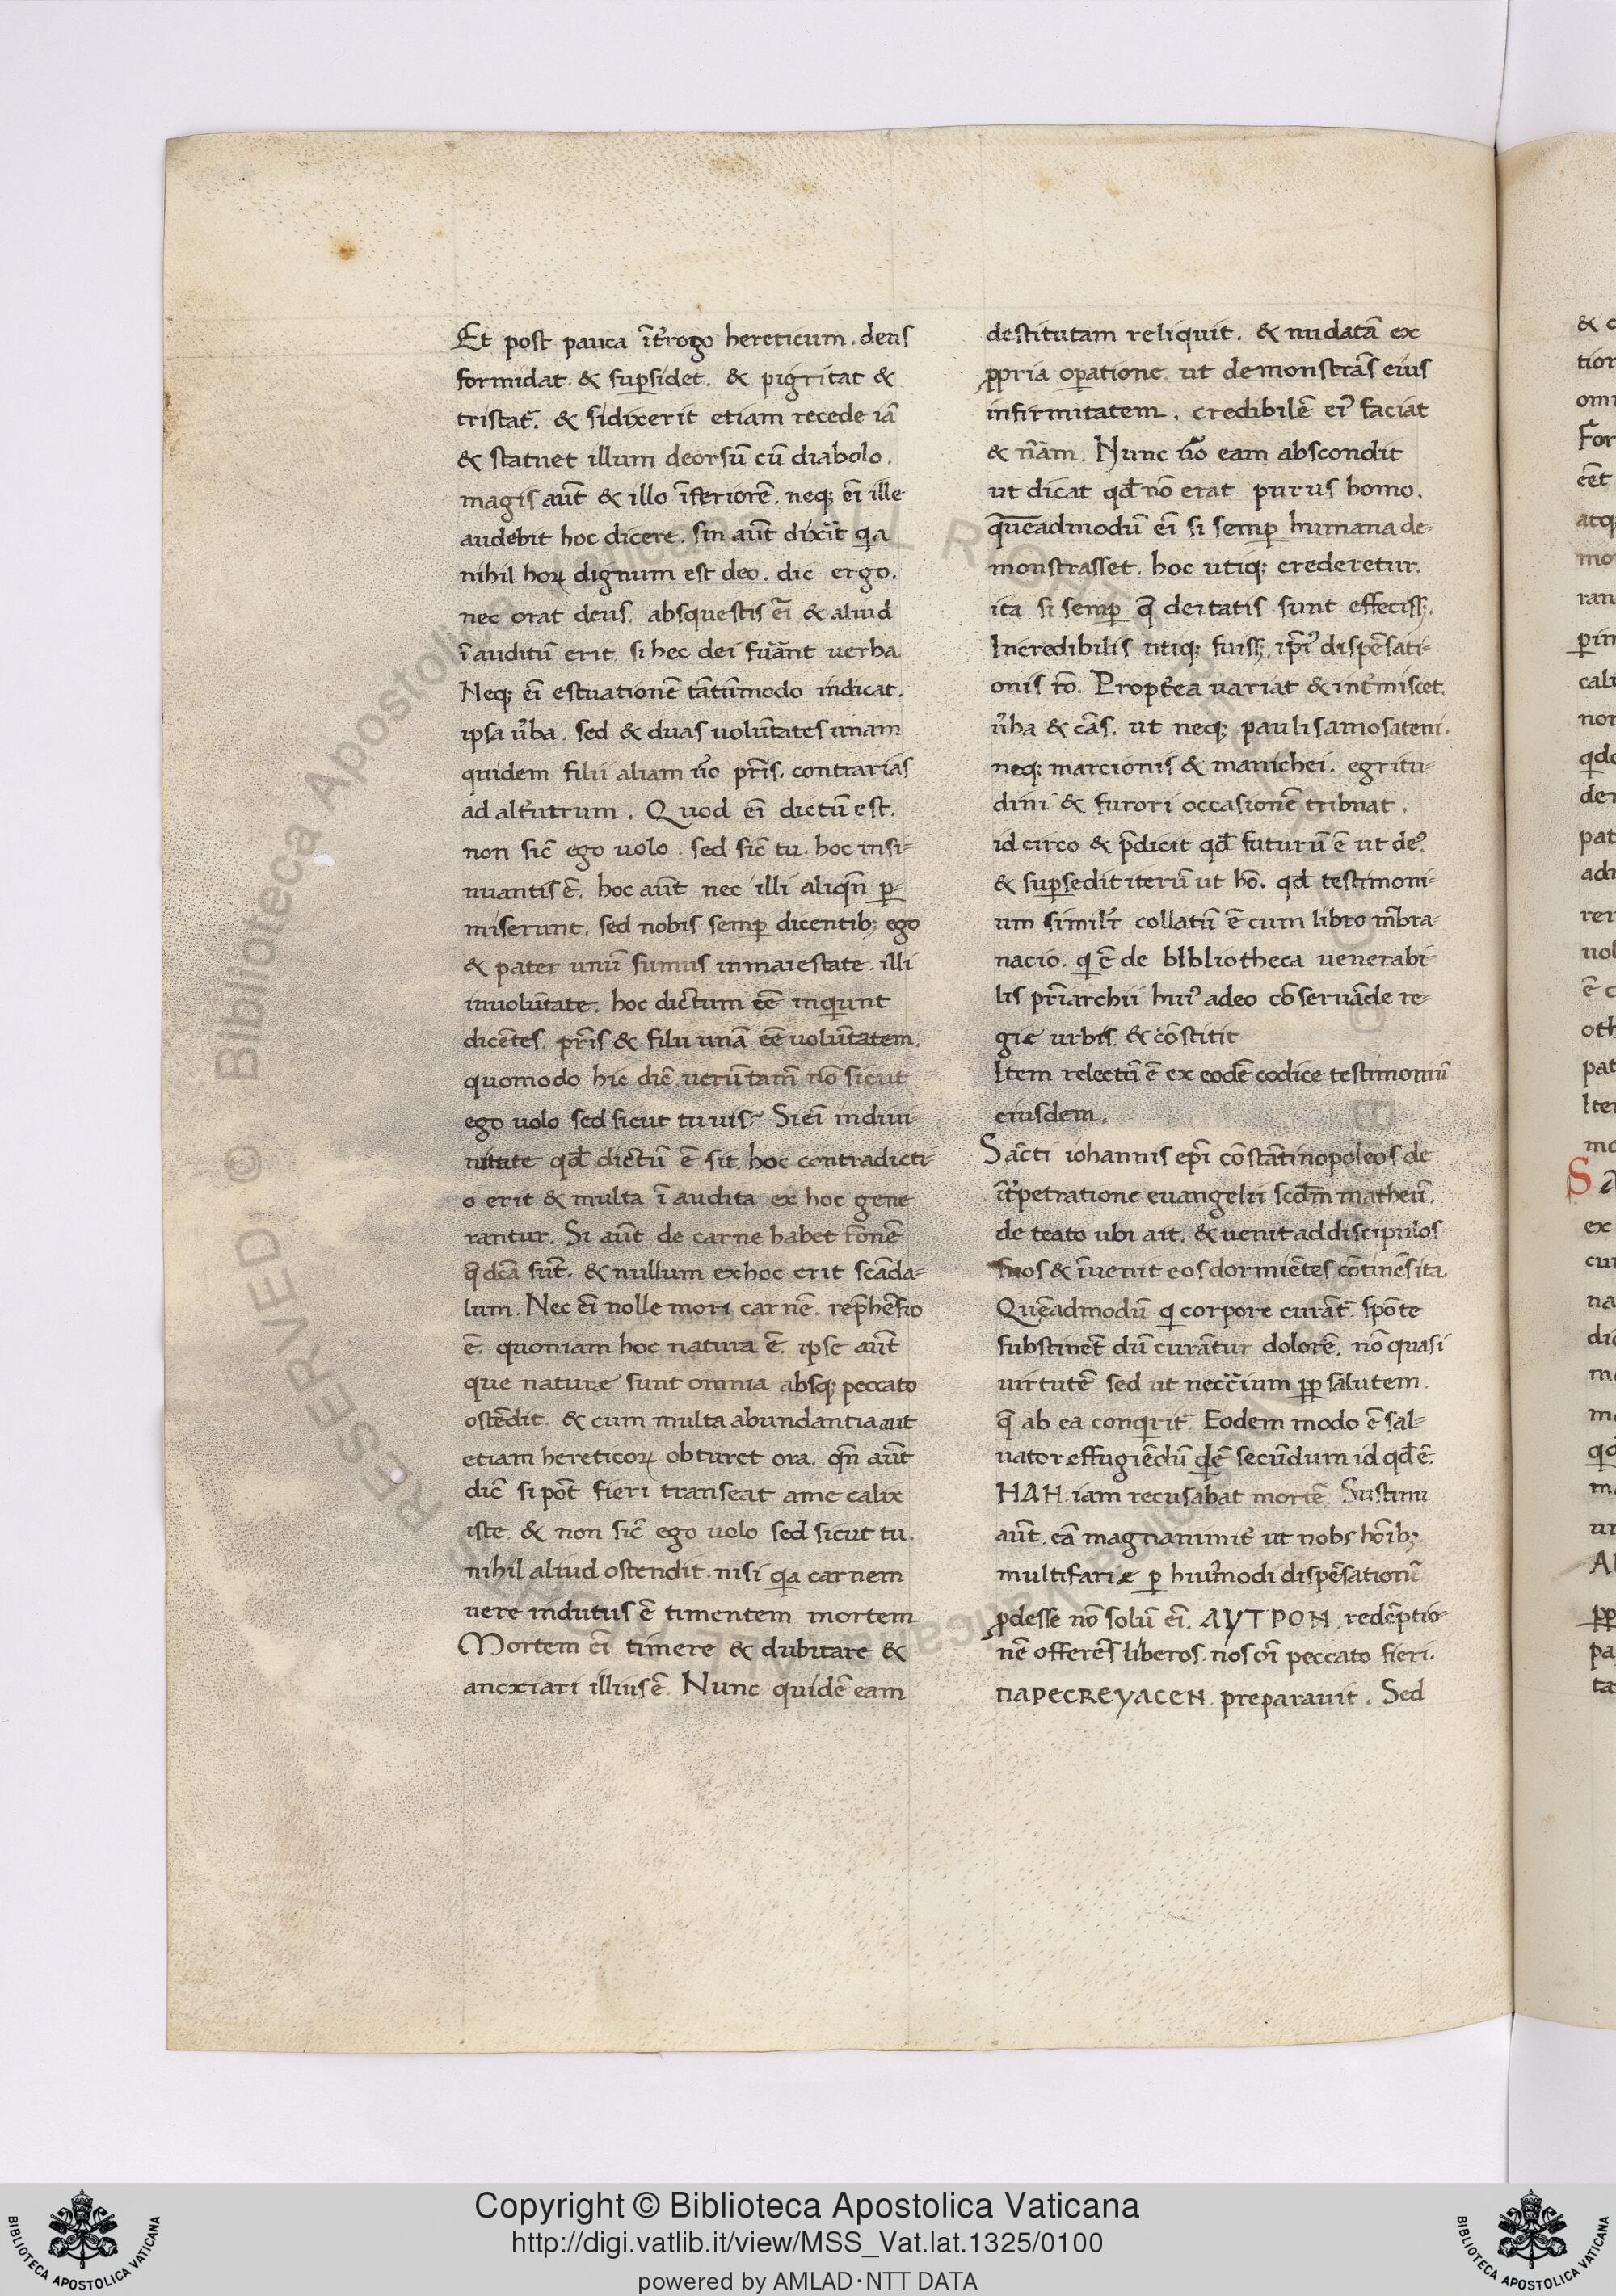 Et post pauca īt̄rogo hereticum . deus
formidat . & suꝑsidet . & pigritat &
tristat᷑ . & sidixerit etiam recede iā
& statuet illum deorsū cū diabolo .
magis aūt & illo īferiorē . neq; ei̅ ille
audebit hoc dicere . sin aūt dix̄it qa
nihil hoꝝ dignum est deo . dic ergo .
nec orat deus . absquestis ei̅ & aliud
īauditū erit . si hec dei fūant uerba .
Neq; ei̅ estuationē tātūmodo indicat .
ipsa ūba . sed & duas uolūtates unam
quidem filii aliam ūo pr̄is . contrarias
ad alt̄utrum . Quod ei̅ dictū est .
non sic̄ ego uolo . sed sic̄ tu . hoc insi-
nuantis ē . hoc aūt nec illi aliqn̄ ꝑ-
miserunt . sed nobis semꝑ dicentib; ego
& pater unū sumus inmaiestate . illi
inuolūtate . hoc dictum ee̅ inquiunt
dicētes . pr̄is & filii unā ee̅ uolūtatem .
quomodo hic dic̄ uerūtam̄ nō sicut
ego uolo sed sicut tu uis . Si ei̅ indiui
nitate qd̄ dictū ē sit . hoc contradicti-
o erit & multa ī audita ex hoc gene
rantur . Si aūt de carne habet rōnē
q̄ dc̄a sūt . & nullum exhoc erit scāda-
lum . Nec ei̅ nolle mori carnē . rep̄hēsio
ē . quoniam hoc natura ē . ipse aūt
que naturæ sunt omnia absq; peccato
ostēdit . & cum multa abundantia aut
etiam hereticoꝝ obturet ora . qn̄ aūt
dic̄ si pōt fieri transeat ame calix
iste . & non sic̄ ego uolo sed sicut tu .
nihil aliud ostendit . nisi qa carnem
uere indutus ē timentem mortem
Mortem ei̅ timere & dubitare &
ancxiari illius ē . Nunc quidē eam
destitutam reliquit . & nudatā ex
ꝓpria oꝑatione . ut demonstrās eius
infirmitatem . credibilē ei᷒ faciat
& nām . Nunc ūo eam abscondit
ut dicat qd̄ nō erat purus homo .
quēadmodū ei̅ si semꝑ humana de-
monstrasset . hoc utiq; crederetur .
ita si semꝑ q̄ deitatis sunt effeciss; .
Incredibilis utiq; fuiss; . ip̄i᷒ dispēsati-
onis rō . Propt̄ea uariat & int̄miscet .
ūba & cās . ut neq; pauli samosateni .
neq; marcionis & manichei . egritu-
dini & furori occasionē tribuat .
id circo & p̄dicit qd̄ futurū ē ut de᷒ .
& suꝑsedit iterū ut hō . qd̄ testimoni-
um simil̄r collatū ē cum libro m̄bra-
nacio . q ē de bIbliotheca uenerabi-
lis pr̄iarchii hui᷒ adeo cōseruāde re-
gie urbis . & cōstitit
Item relectū ē ex eodē codice testimoniū
eiusdem .
Sācti iohannis ep̄i cōstātinopoleos de
īt̄petratione euangelii scd̄m matheū .
de teato ubi ait . & uenit ad discipulos
suos & īuenit eos dormiētes cōtinēs ita .
Quēadmodū q corpore curāt᷑ . spōte
substinēt dū curātur dolorē . nō quasi
uirtutē sed ut necc̄ium ꝓp salutem .
q̄ ab ea conqrit᷑ . Eodem modo ē sal-
uator effugiēdū qdē secūdum id qd̄ ē .
HAH . iam recusabat moriē . Sustinu
aūt . eā magnanimit̄ ut nobs hōib; .
multifariæ ꝑ hui᷒modi dispēsationē
ꝓdesse nō solū ei̅ . ΛΥΤΡΟΝ . redēptio-
nē offerēs liberos . nos oī peccato fieri .
ΠΑΡΕCREΥΑCΕΝ . preparauit . Sed
Copyright © Biblioteca Apostolica Vaticana
http://digi.vatlib.it/view/MSS_Vat.lat.1325/0100
powered by AMLAD·NTT DATA
BIBLIOTECA APOSTOLICA VATICANA
BIBLIOTECA APOSTOLICA VATICANA